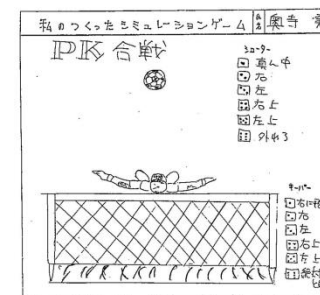 私のつくったシミュレーションゲーム
氏名 奥寺
PK合戦
シューター
⚀ 真ん中
⚁ 右
⚂ 左
⚃ 右上
⚄ 左上
⚅ 外れる
キーパー
⚁ 右
⚂ 左
⚃ 右上
⚄ 左上